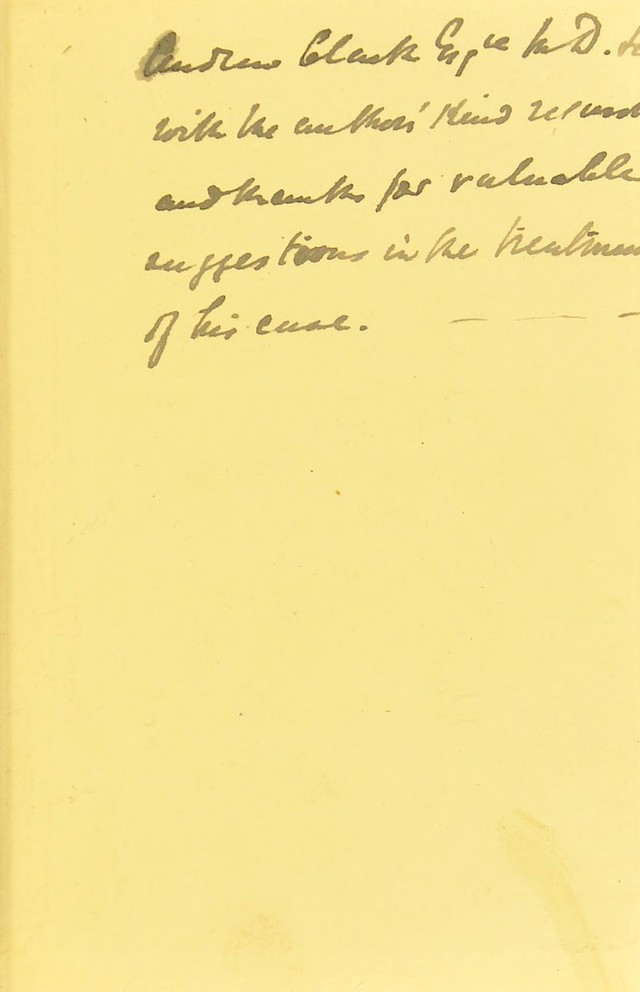 Andrew Clark Esqre M.D.
with the author's kind regard
and thanks for valuable
suggestions in the treatmen
of his case.